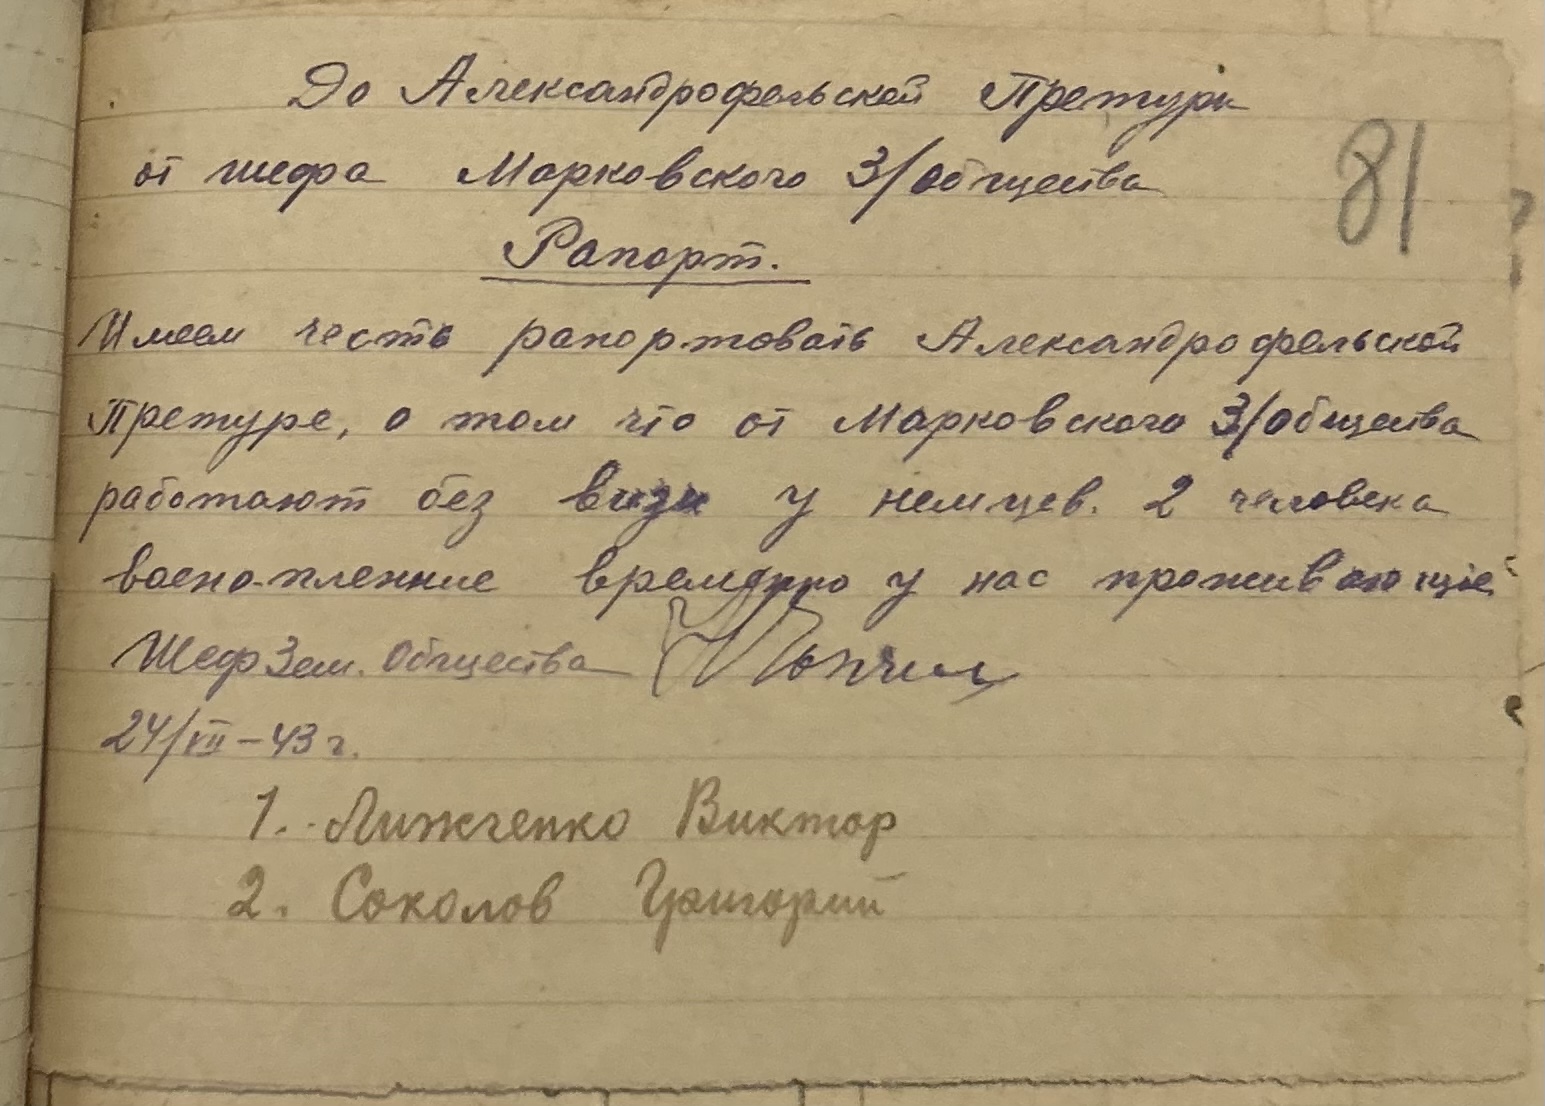 До Александрофельской Претури
от шефа Марковского З/общества
81
Рапорт.
Имеем честь рапортовать Александрофельской
Претуре, о том что от Марковского З/общества
работают без визи у немцев. 2 человека
военно-пленние временно у нас проживающие
Шеф Зем. Общества
24/VII – 43 г.
1. Лижченко Виктор
2. Соколов Григорий